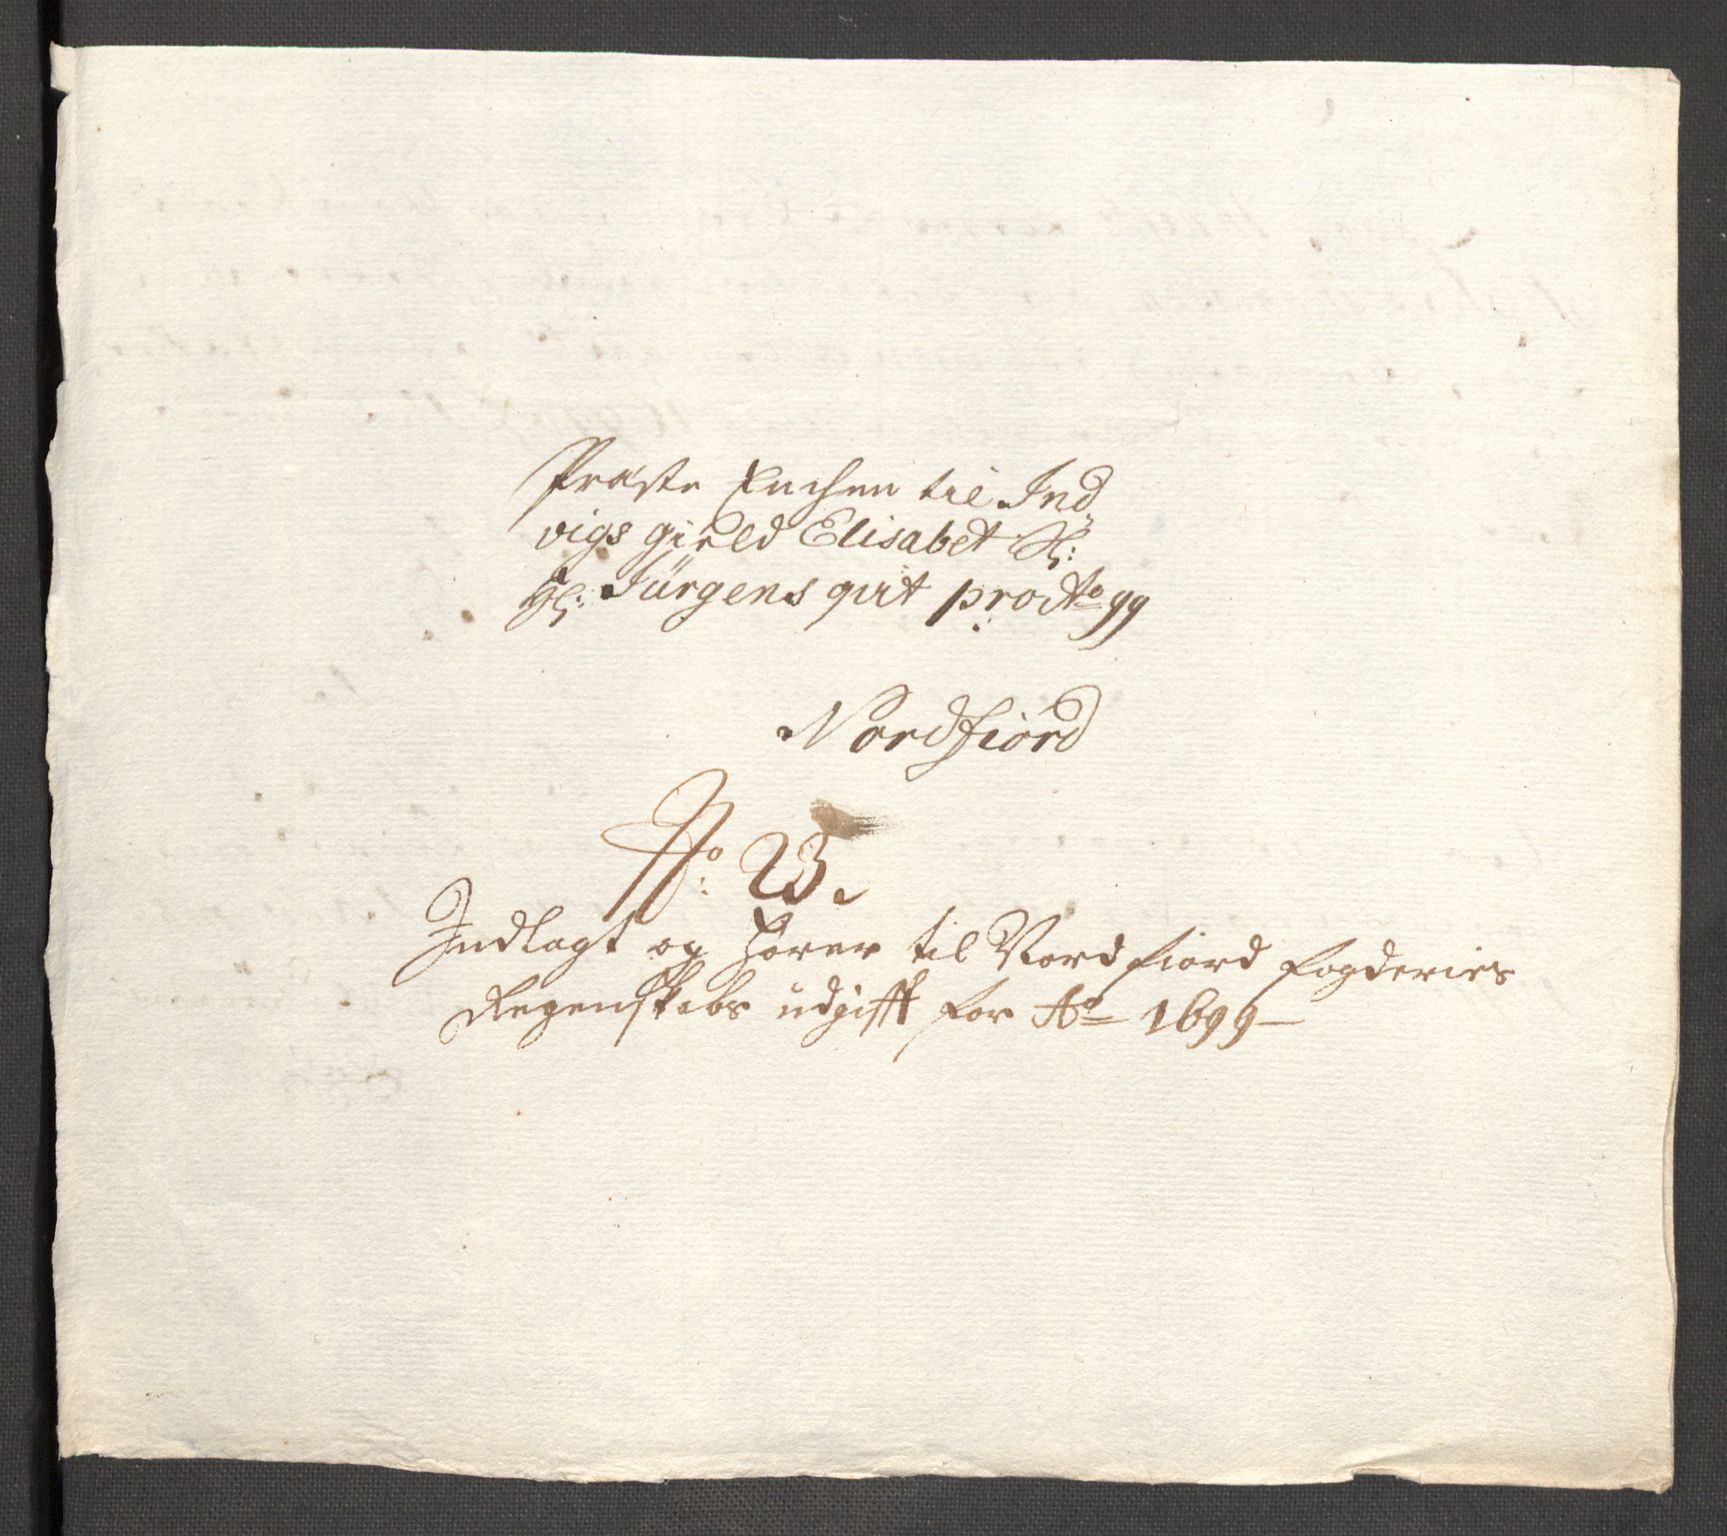 Præste Enchen til Ind„
vigs gield Elisabet Sl:
Hl: Jürgens qvit pro Ao 99
Nordfiord
No: 23.
Indlagt og hörer til Nordfiord fogderies
Regenskabs üdgifft for Ao 1699